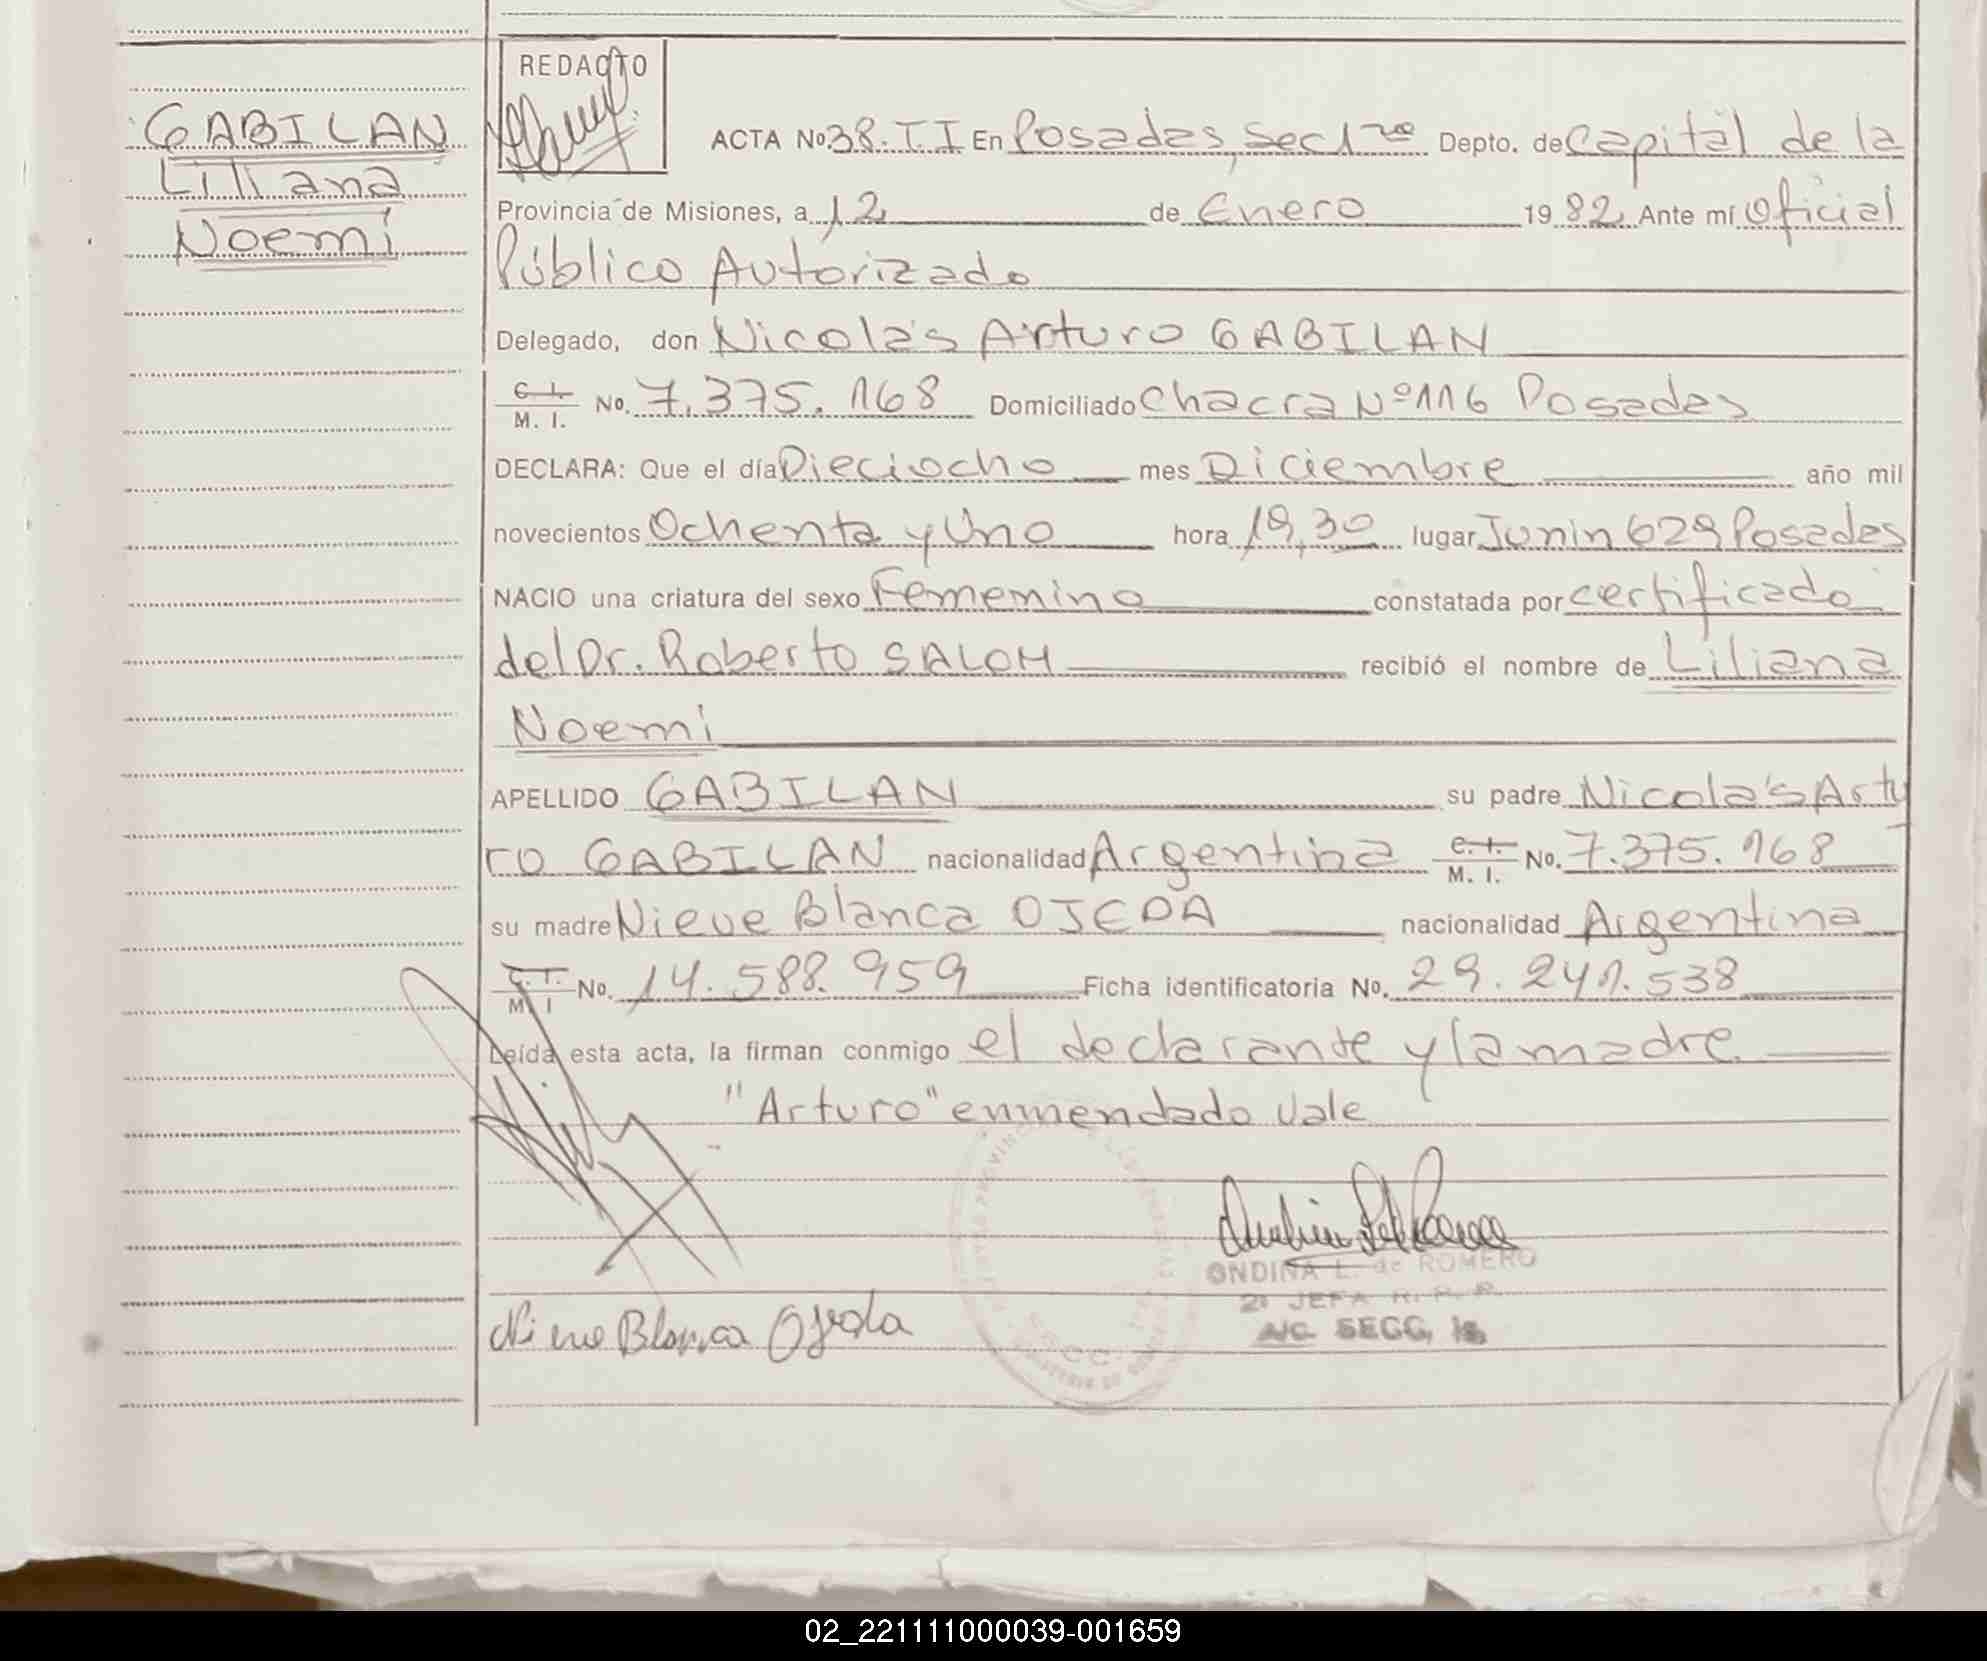 GABILAN
Liliana
Noemi
REDACTO
ACTA No. 38. T. I En Posadas, Sec 1ra Depto. de Capital de la
Provincia de Misiones, a 12 de Enero 1982 Ante mí Oficial
Público Autorizado
Delegado, don Nicolás Arturo GABILAN
C. I. M. I. No. 7.375.168 Domiciliado Chacra Nº 116 Posadas
DECLARA: Que el día Dieciocho mes Diciembre año mil
novecientos Ochenta y Uno hora 19,30 lugar Junin 629 Posadas
NACIO una criatura del sexo Femenino constatada por certificado
del Dr. Roberto SALOM recibió el nombre de Liliana
Noemi
APELLIDO GABILAN su padre Nicolás Artu
ro GABILAN nacionalidad Argentina C. I. M. I. No. 7.375.168
su madre Nieve Blanca OJEDA nacionalidad Argentina
C. I. M. I No. 14.588.959 Ficha identificatoria No. 29.241.538
Leída esta acta, la firman conmigo el declarante y la madre
"Arturo" enmendado vale
ONDINA L. de ROMERO
2ª JEFA R. P. P.
A/C. SECC. 1a
Nieve Blanca Ojeda
02_221111000039-001659